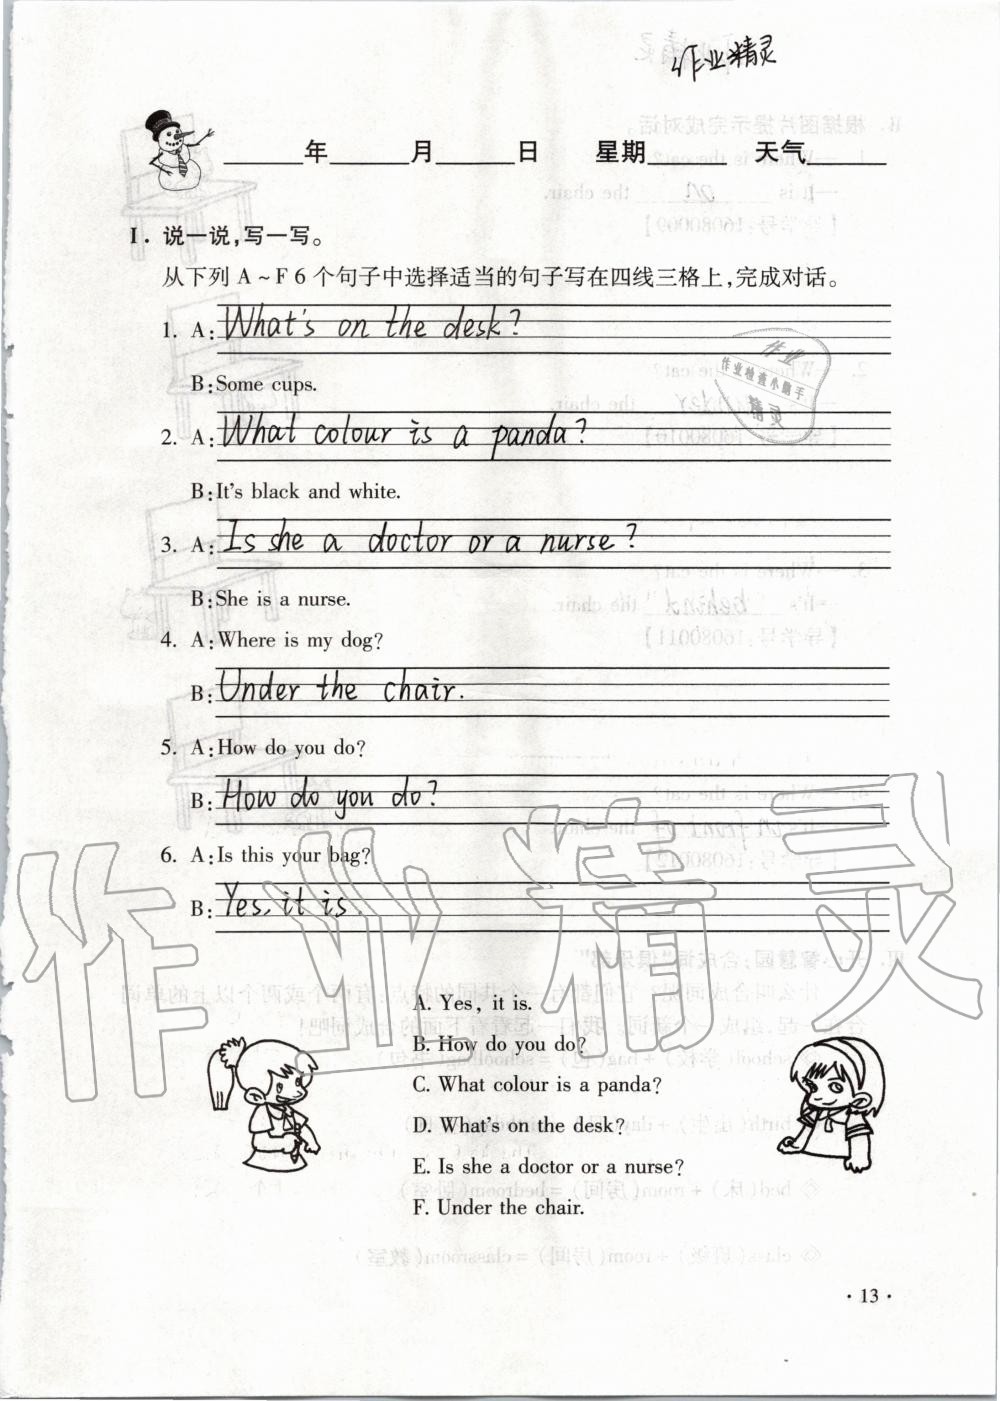 作业精灵
____年____月____日 星期____ 天气____
I. 说一说,写一写。
从下列 A～F 6 个句子中选择适当的句子写在四线三格上,完成对话。
1. A: What's on the desk?
B: Some cups.
2. A: What colour is a panda?
B: It's black and white.
3. A: Is she a doctor or a nurse?
B: She is a nurse.
4. A: Where is my dog?
B: Under the chair.
5. A: How do you do?
B: How do you do?
6. A: Is this your bag?
B: Yes, it is.
作业
作业检查小助手
精灵
作业精灵
A. Yes, it is.
B. How do you do?
C. What colour is a panda?
D. What's on the desk?
E. Is she a doctor or a nurse?
F. Under the chair.
·13·